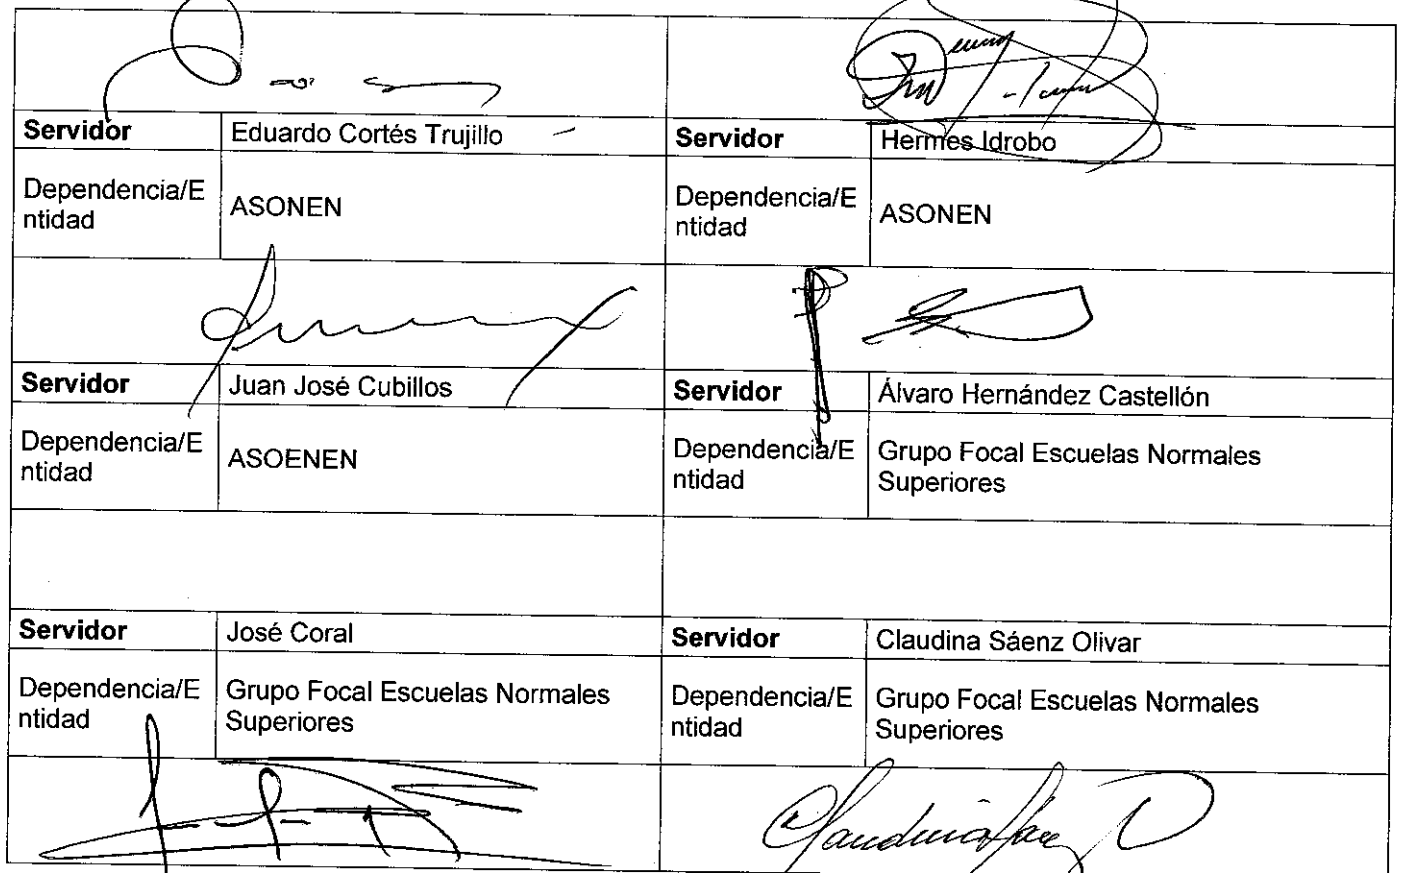 Servidor Eduardo Cortés Trujillo Servidor Hermes Idrobo
Dependencia/E
ntidad
ASONEN
Dependencia/E
ntidad
ASONEN
Servidor Juan José Cubillos Servidor Álvaro Hernández Castellón
Dependencia/E
ntidad
ASOENEN
Dependencia/E
ntidad
Grupo Focal Escuelas Normales
Superiores
Servidor José Coral Servidor Claudina Sáenz Olivar
Dependencia/E
ntidad
Grupo Focal Escuelas Normales
Superiores
Dependencia/E
ntidad
Grupo Focal Escuelas Normales
Superiores